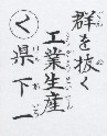 群を抜く
工業生産
く
県下一